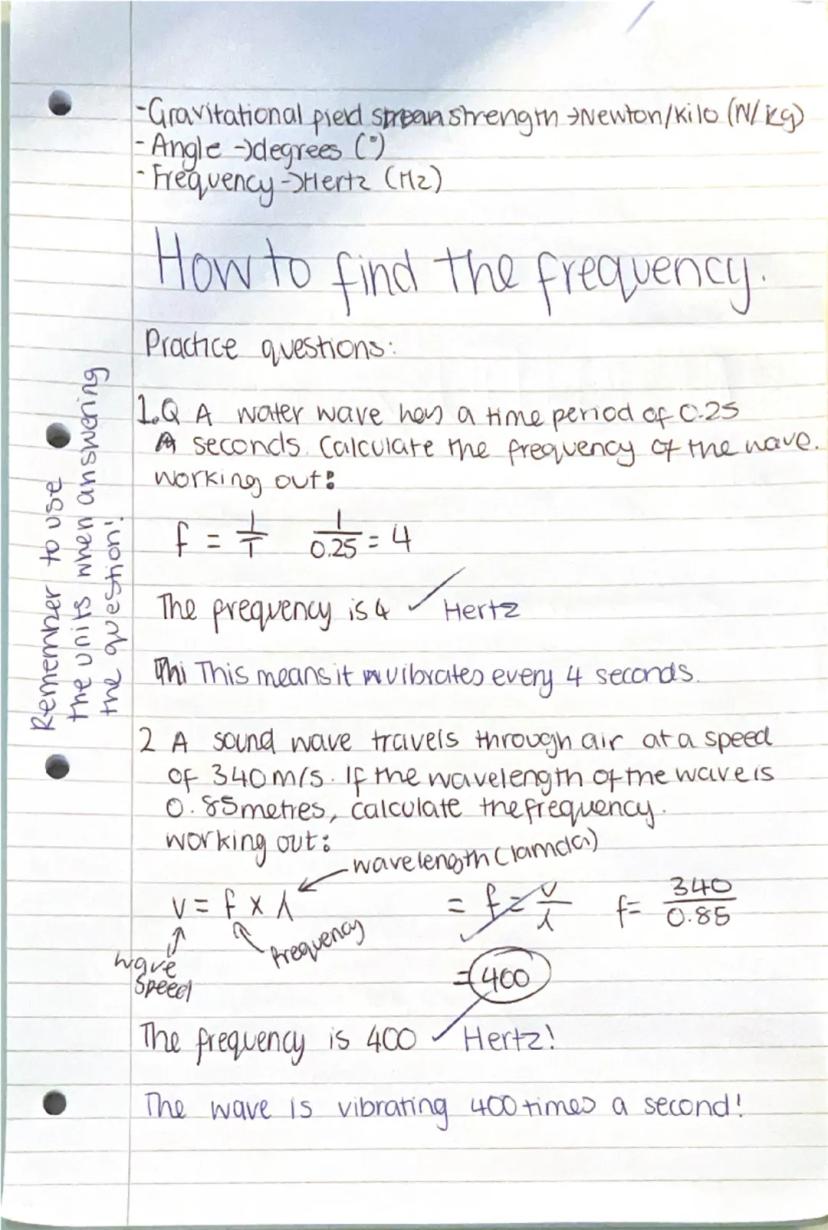 -Gravitational pield strean strength →Newton/kilo (N/kg)
-Angle →degrees (°)
-Frequency →Hertz (Hz)
How to find the frequency.
Practice questions:
1.Q A water wave has a time period of 0.25
A seconds. Calculate the frequency of the wave.
working out:
f = 1/T 1/0.25 = 4
The prequency is 4 ✓ Hertz
Thi This means it vibrates every 4 seconds.
Remember to use
the units when answering
the question!
2 A sound wave travels through air at a speed
of 340m/s. If the wavelength of the wave is
0.85metres, calculate the frequency.
working out:
wavelength (lamda)
v = f x λ = f = v/λ f= 340/0.85
wave
speed
prequency
=400
The frequency is 400 ✓ Hertz!
The wave is vibrating 400 times a second!